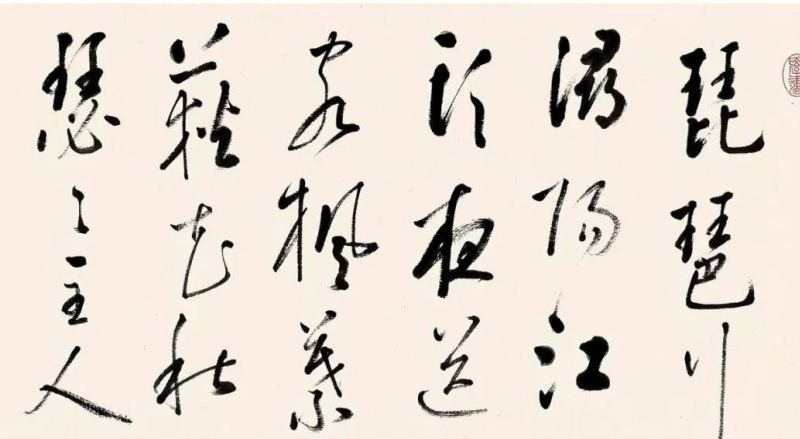 琵琶行
潯陽江
頭夜送
客楓葉
荻花秋
瑟〻主人